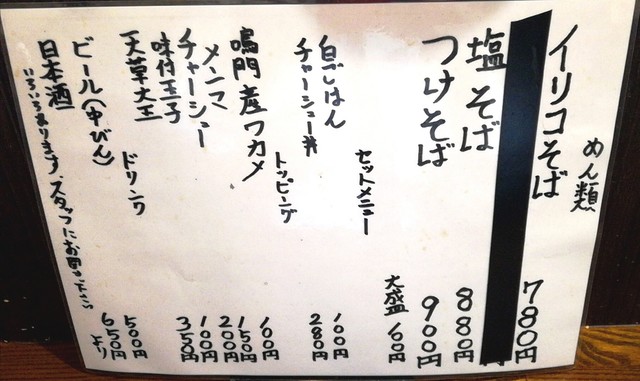 めん類
イリコそば 780円
塩そば 880円
つけそば 900円
大盛 100円
セットメニュー
白ごはん 100円
チャーシュー丼 280円
トッピング
鳴門産ワカメ 100円
メンマ 150円
チャーシュー 200円
味付玉子 100円
天草大王 350円
ドリンク
ビール(中びん) 500円
日本酒 650円ヨリ
いろいろあります。スタッフにお聞き下さい